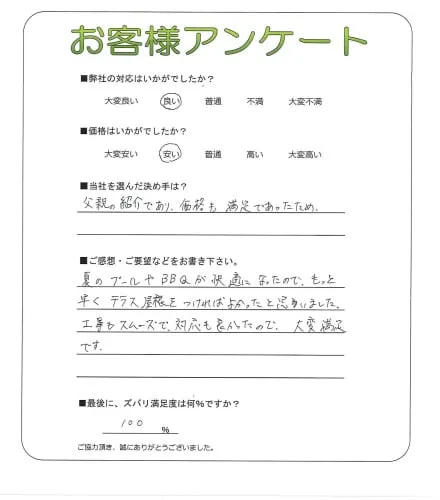 お客様アンケート
■弊社の対応はいかがでしたか?
大変良い 良い 普通 不満 大変不満
■価格はいかがでしたか?
大変安い 安い 普通 高い 大変高い
■当社を選んだ決め手は?
父親の紹介であり、価格も満足であったため。
■ご感想・ご要望などをお書き下さい。
夏のプールやBBQが快適になったので、もっと
早くテラス屋根をつければよかったと思いました。
工事もスムーズで、対応も良かったので、大変満足
です。
■最後に、ズバリ満足度は何%ですか?
100 %
ご協力頂き、誠にありがとうございました。